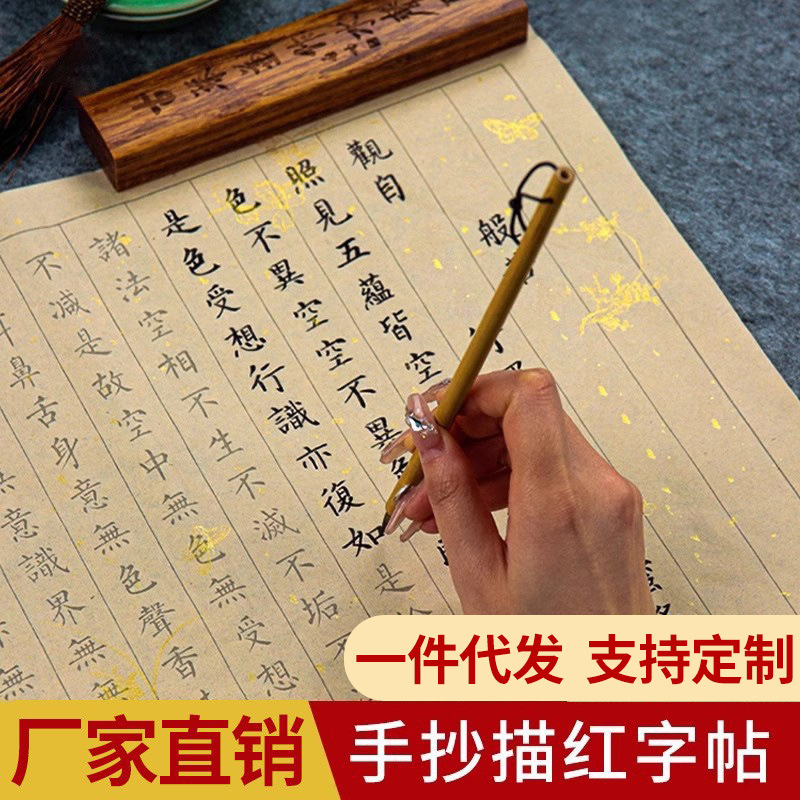 般
觀自
照見五蘊皆空
色不異空空不異色
是色受想行識亦復如是
諸法空相不生不滅不垢不
不減是故空中無色無受想
耳鼻舌身意無色聲香
意識界無
一件代发 支持定制
厂家直销
手抄描红字帖